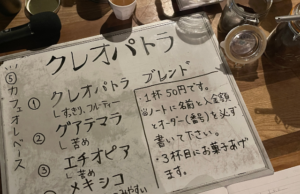 クレオパトラ
⑤カフェオレベース
① クレオパトラ ブレンド
Lすっきり、フルーティー
② グアテマラ
L苦め
③ エチオピア
L苦め
メキシコ
みやすい
・1杯50円です。
ノートに名前と入金額
とオーダー(番号)を必ず
書いて下さい。
・3杯目にお菓子あげ
ます。